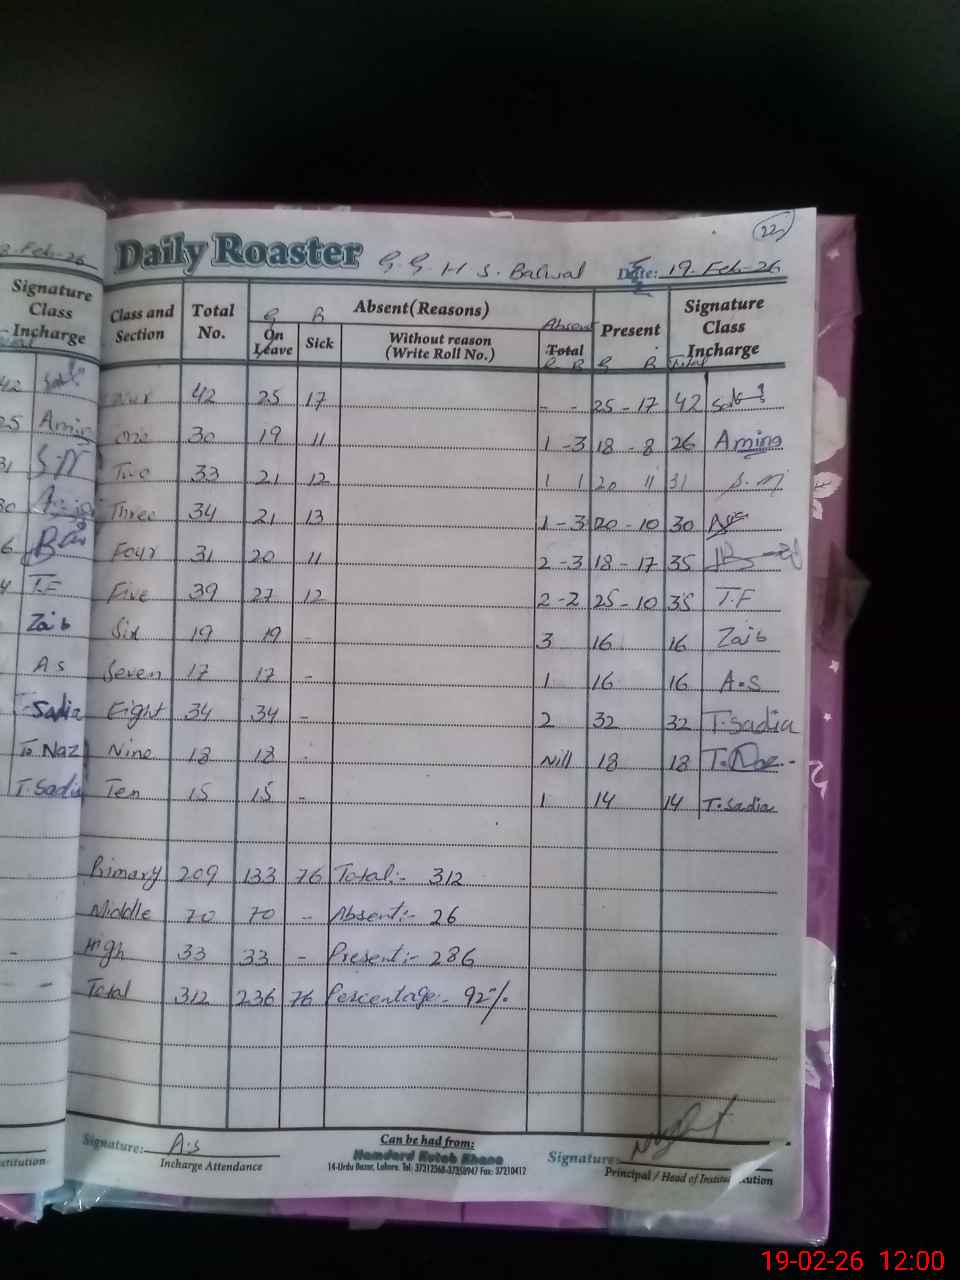 Daily Roaster G.G.H.S. Barwal Date: 19-Feb-26
22
Class and Section Total No. Absent(Reasons) Present Signature Class Incharge
G B Absent
On Leave Sick Without reason (Write Roll No.) Total
G B G B Total
42 25 17 - - 25 - 17 42
One 30 19 11 1 - 3 18 - 8 26 Amina
Two 33 21 12 1 1 20 11 31 S.M
Three 34 21 13 1 - 3 20 - 10 30
Four 31 20 11 2 - 3 18 - 17 35
Five 39 27 12 2 - 2 25 - 10 35 T.F
Six 19 19 - 3 16 16 Zaib
Seven 17 17 - 1 16 16 A.S
Eight 34 34 - 2 32 32 T.Sadia
Nine 18 18 - Nill 18 18
Ten 15 15 - 1 14 14 T.Sadia
Primary 209 133 76 Total:- 312
Middle 70 70 - Absent:- 26
High 33 33 - Present:- 286
Total 312 236 76 Percentage:- 92%
Signature: A.S
Incharge Attendance
Can be had from:
Hamdard Kutab Khana
14-Urdu Bazar, Lahore. Tel: 37212568-37350947 Fax: 37210412
Signature:
Principal / Head of Institution
Feb-26
Signature
Class
Incharge
42
25 Amina
31
30
6
4 T.F
Zaib
A S
T-Sadia
T. Naz
T.Sadia
stitution
19-02-26 12:00